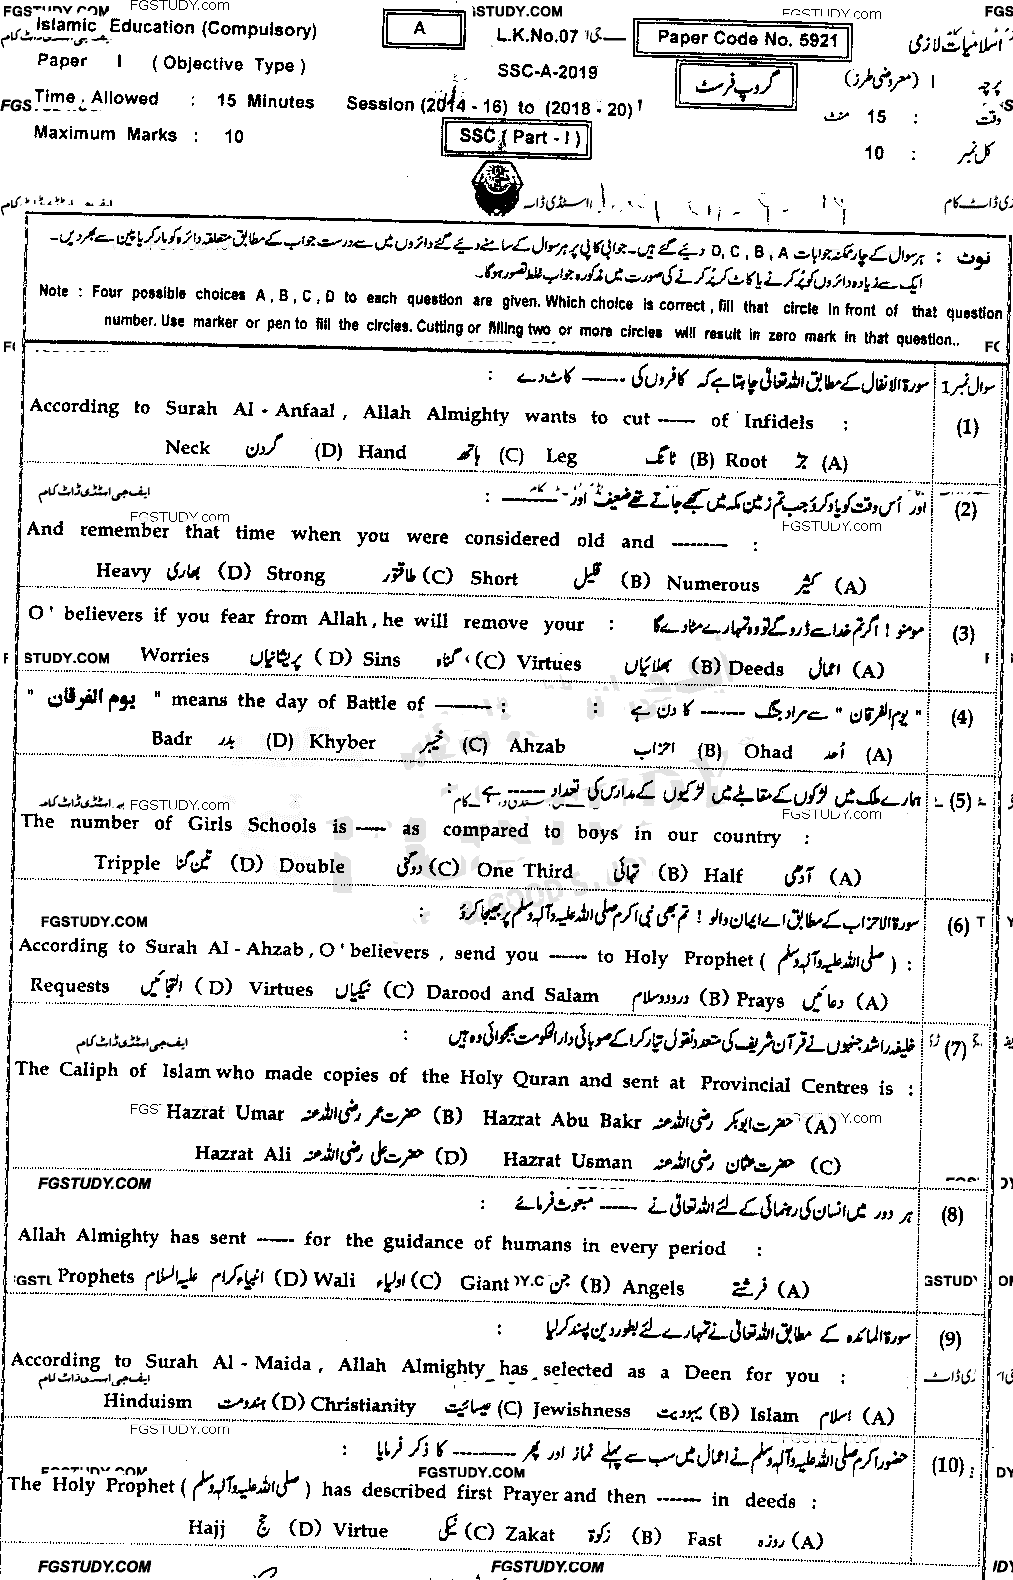 FGSTUDY.com FGSTUDY.COM FGSTUDY.com FGS
Islamic Education (Compulsory) A L.K.No.07 Paper Code No. 5921 اسلامیات لازمی
Paper I (Objective Type) SSC-A-2019 گروپ فرسٹ پرچہ I (معروضی طرز)
Time Allowed : 15 Minutes Session (2014 - 16) to (2018 - 20) وقت : 15 منٹ
Maximum Marks : 10 SSC (Part - I) کل نمبر : 10
نوٹ : ہر سوال کے چار ممکنہ جوابات A ، B ، C ، D دیئے گئے ہیں۔ جوابی کاپی پر ہر سوال کے سامنے دیئے گئے دائروں میں سے درست جواب کے مطابق متعلقہ دائرہ کو مارکر یا پین سے بھر دیں۔
ایک سے زیادہ دائروں کو پُر کرنے یا کاٹ کر پُر کرنے کی صورت میں مذکورہ جواب غلط تصور ہوگا۔
Note : Four possible choices A , B , C , D to each question are given. Which choice is correct , fill that circle in front of that question
number. Use marker or pen to fill the circles. Cutting or filling two or more circles will result in zero mark in that question..
سوال نمبر 1 سورۃ الانفال کے مطابق اللہ تعالیٰ چاہتا ہے کہ کافروں کی ------ کاٹ دے :
According to Surah Al - Anfaal , Allah Almighty wants to cut ------ of Infidels : (1)
Neck گردن (D) Hand ہاتھ (C) Leg ٹانگ (B) Root جڑ (A)
اور اُس وقت کو یاد کرو جب تم زمین مکہ میں سمجھے جاتے تھے ضعیف اور ------ : (2)
ایف جی اسٹڈی ڈاٹ کام
FGSTUDY.com FGSTUDY.com
And remember that time when you were considered old and -------- :
Heavy بھاری (D) Strong طاقتور (C) Short قلیل (B) Numerous کثیر (A)
O ' believers if you fear from Allah , he will remove your : مومنو ! اگر تم خدا سے ڈرو گے تو وہ تمہارے مٹا دے گا (3)
STUDY.COM Worries پریشانیاں (D) Sins گناہ (C) Virtues بھلائیاں (B) Deeds اعمال (A)
" یوم الفرقان " means the day of Battle of -------- : : " یوم الفرقان " سے مراد جنگ ------ کا دن ہے (4)
Badr بدر (D) Khyber خیبر (C) Ahzab احزاب (B) Ohad اُحد (A)
ہمارے ملک میں لڑکوں کے مقابلے میں لڑکیوں کے مدارس کی تعداد ------ ہے : (5)
FGSTUDY.com FGSTUDY.com
The number of Girls Schools is ----- as compared to boys in our country :
Tripple تین گنا (D) Double دوگنی (C) One Third تہائی (B) Half آدھی (A)
FGSTUDY.COM سورۃ الاحزاب کے مطابق اے ایمان والو ! تم بھی نبی اکرم صلی اللہ علیہ وآلہ وسلم پر بھیجا کرو : (6)
According to Surah Al - Ahzab , O ' believers , send you ------ to Holy Prophet ( صلی اللہ علیہ وآلہ وسلم ) :
Requests التجائیں (D) Virtues نیکیاں (C) Darood and Salam درود و سلام (B) Prays دعائیں (A)
ایف جی اسٹڈی ڈاٹ کام خلیفہ راشد جنہوں نے قرآن شریف کی متعدد نقول تیار کرا کے صوبائی دارالحکومت بھجوائی وہ ہیں : (7)
The Caliph of Islam who made copies of the Holy Quran and sent at Provincial Centres is :
Hazrat Umar حضرت عمر رضی اللہ عنہ (B) Hazrat Abu Bakr حضرت ابوبکر رضی اللہ عنہ (A)
Hazrat Ali حضرت علی رضی اللہ عنہ (D) Hazrat Usman حضرت عثمان رضی اللہ عنہ (C)
FGSTUDY.COM
ہر دور میں انسان کی رہنمائی کے لئے اللہ تعالیٰ نے ------ مبعوث فرمائے : (8)
Allah Almighty has sent ------ for the guidance of humans in every period :
Prophets انبیاء کرام علیہ السلام (D) Wali اولیاء (C) Giant جن (B) Angels فرشتے (A)
سورۃ المائدہ کے مطابق اللہ تعالیٰ نے تمہارے لئے بطور دین پسند کر لیا : (9)
According to Surah Al - Maida , Allah Almighty has selected as a Deen for you :
ایف جی اسٹڈی ڈاٹ کام
Hinduism ہندومت (D) Christianity عیسائیت (C) Jewishness یہودیت (B) Islam اسلام (A)
FGSTUDY.com
حضور اکرم صلی اللہ علیہ وآلہ وسلم نے اعمال میں سب سے پہلے نماز اور پھر --------- کا ذکر فرمایا : (10)
FGSTUDY.COM
The Holy Prophet ( صلی اللہ علیہ وآلہ وسلم ) has described first Prayer and then ------- in deeds :
Hajj حج (D) Virtue نیکی (C) Zakat زکوٰۃ (B) Fast روزہ (A)
FGSTUDY.COM FGSTUDY.COM